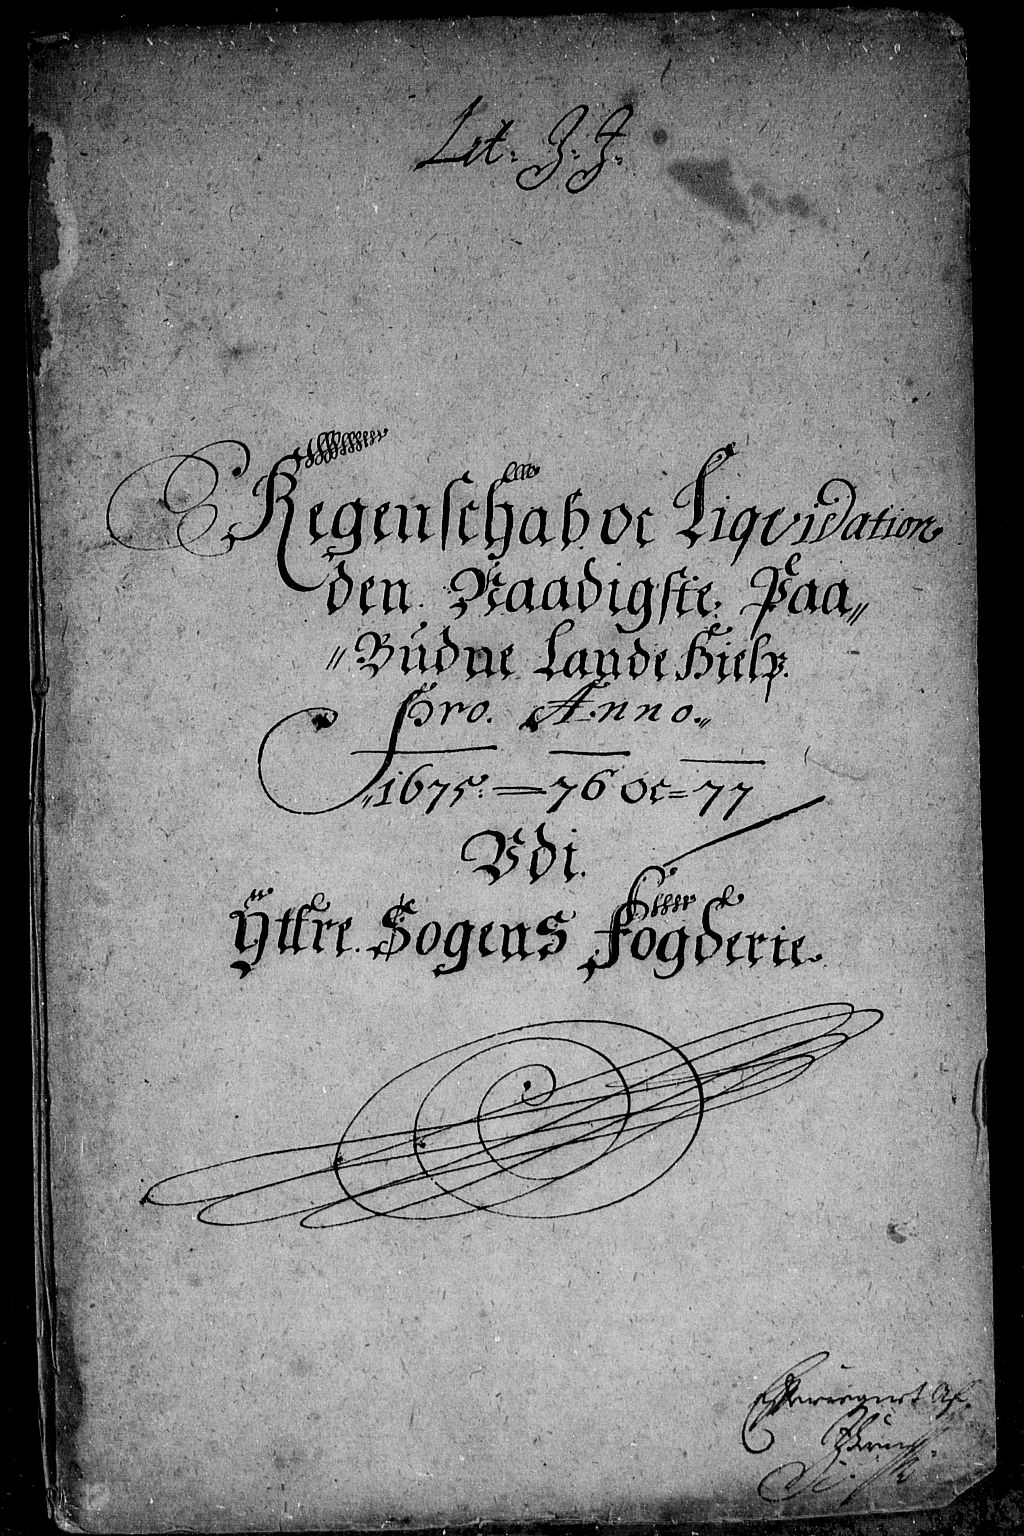 Lit. J. J.
Regenschab. oc Liqvidation
den. Naadigste. Paa„
„Budne Lande Hielp.
Pro. Anno.„
„1675. — 76 Oc = 77
Vdi.
Ÿttre. Sogens Fogderie.
Af.